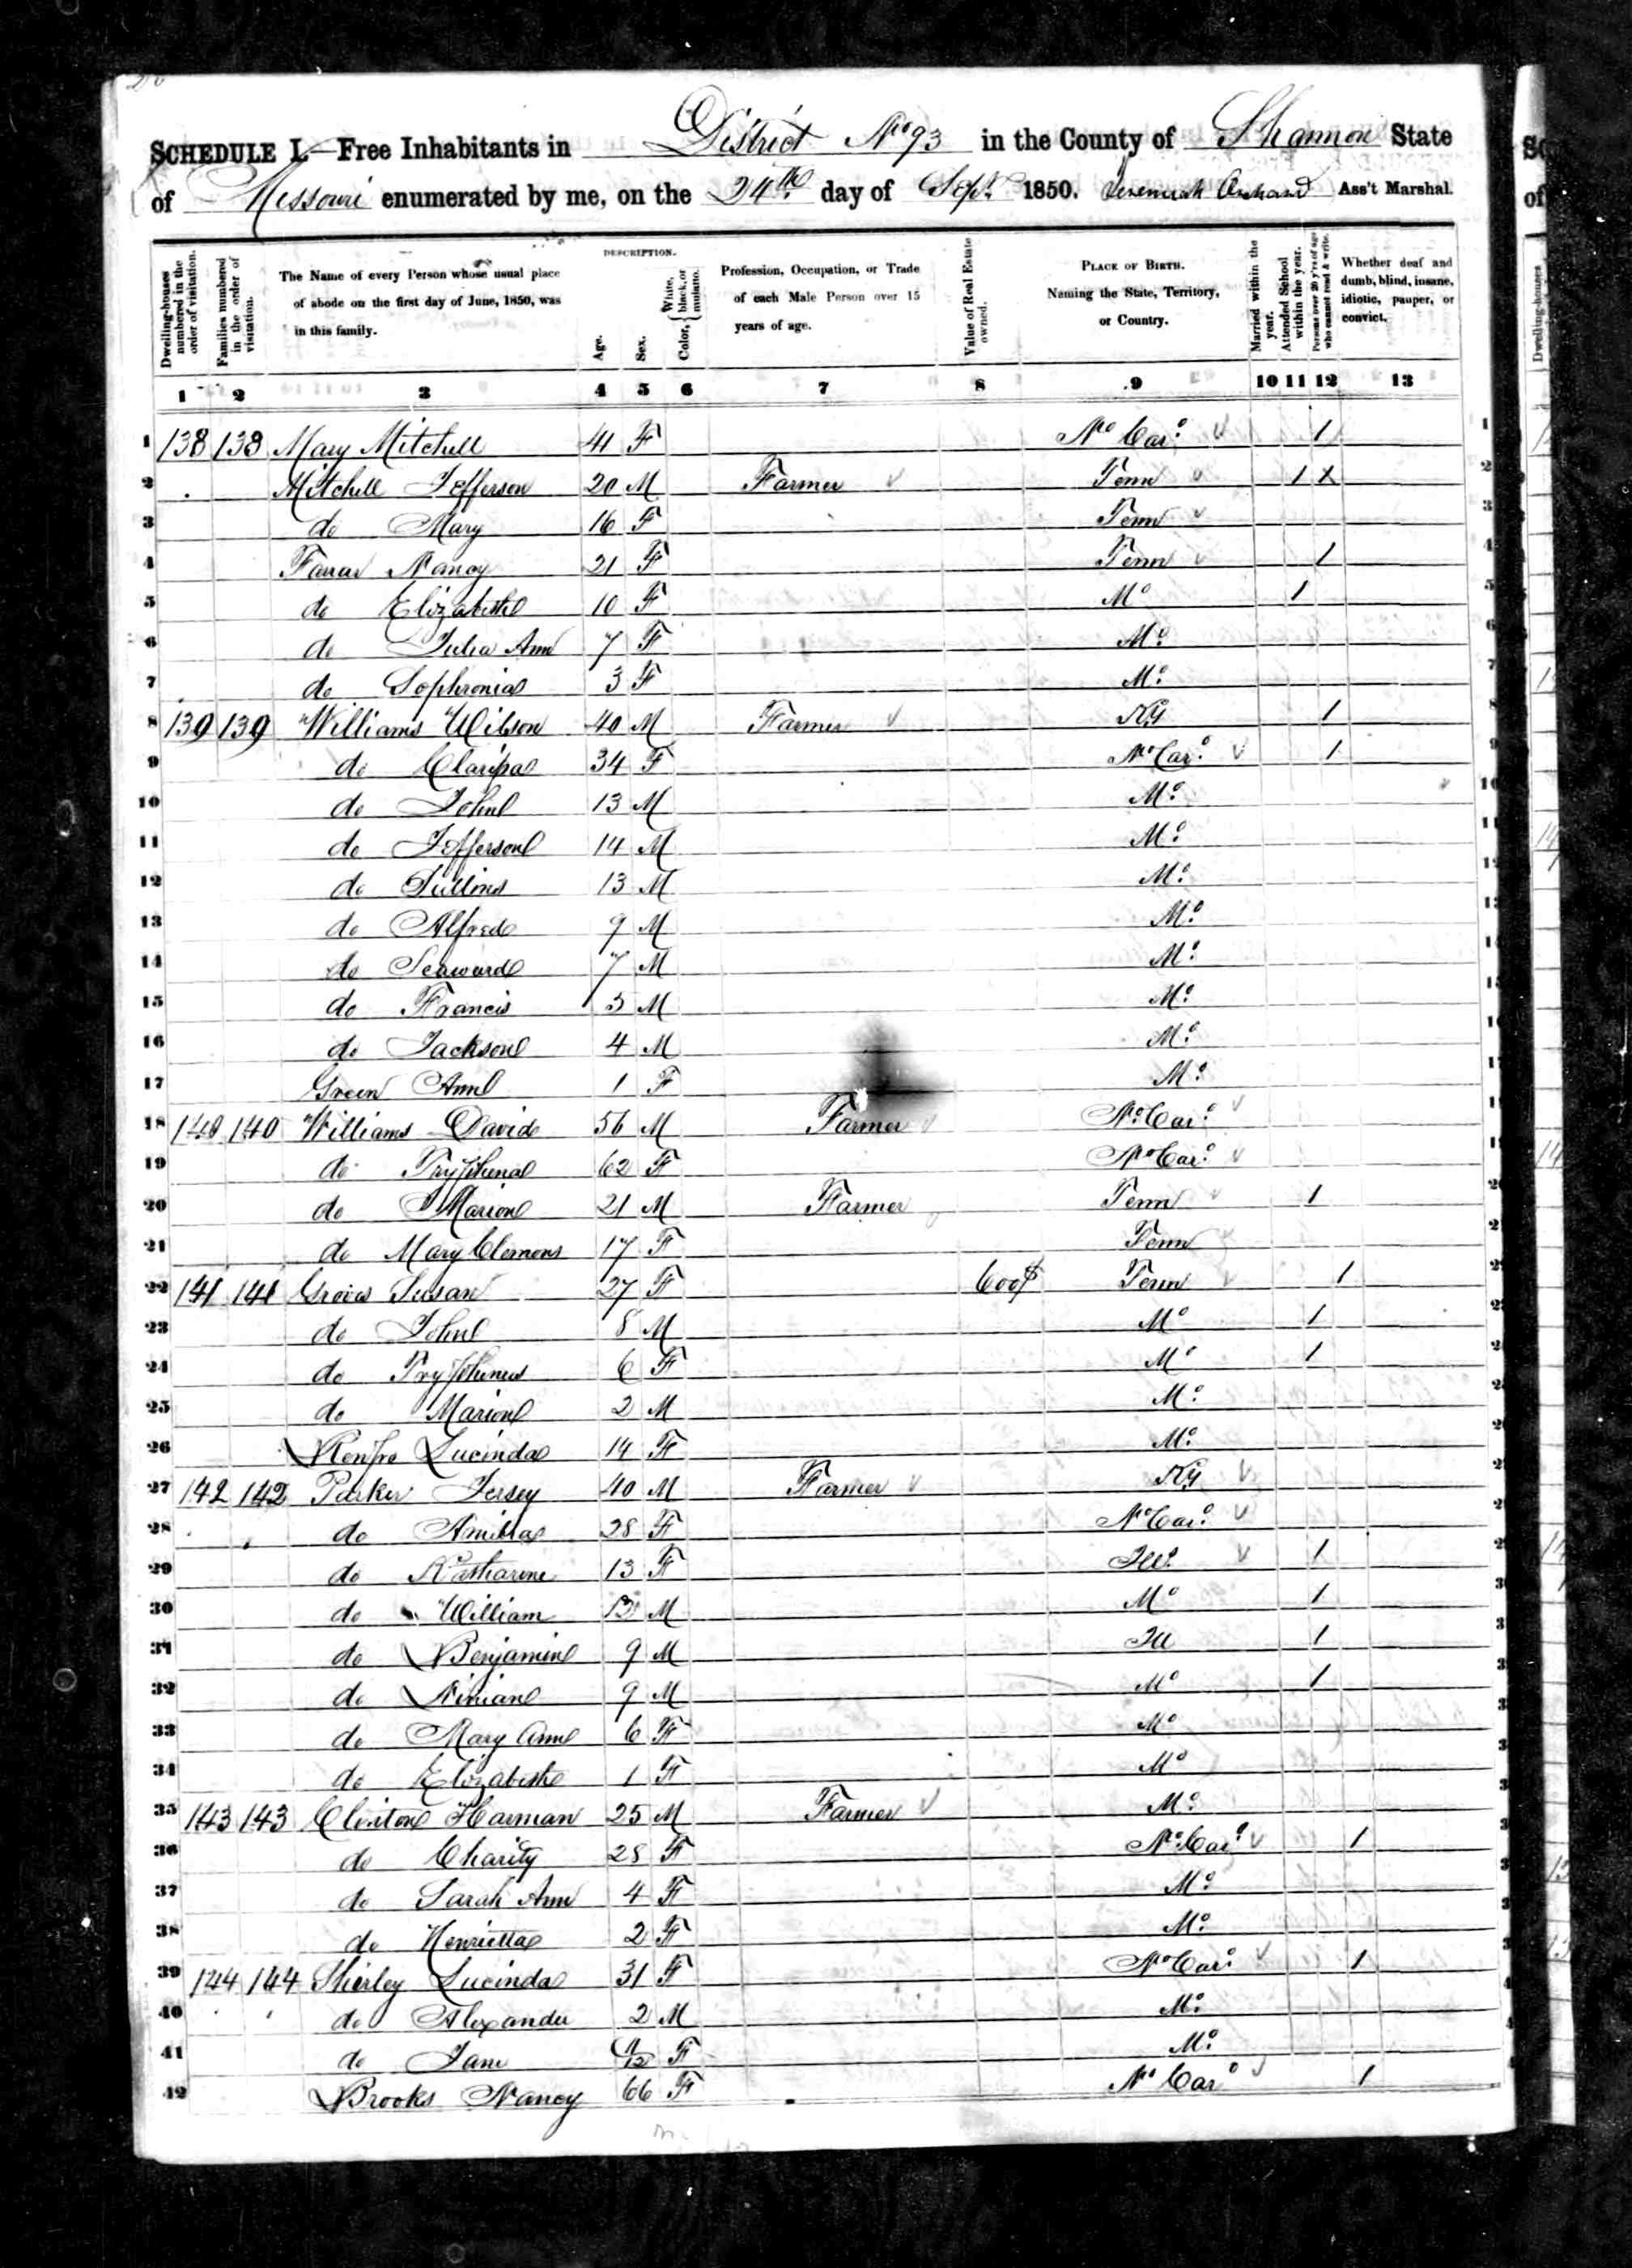 SCHEDULE I.—Free Inhabitants in District No 93 in the County of Shannon State
of Missouri enumerated by me, on the 24th day of Sept 1850. Jeremiah Orchard Ass't Marshal.
DESCRIPTION.
Dwelling-houses numbered in the order of visitation.
Families numbered in the order of visitation.
The Name of every Person whose usual place of abode on the first day of June, 1850, was in this family.
Age.
Sex.
Color, { White, black, or mulatto.
Profession, Occupation, or Trade of each Male Person over 15 years of age.
Value of Real Estate owned.
PLACE OF BIRTH. Naming the State, Territory, or Country.
Married within the year.
Attended School within the year.
Persons over 20 y'rs of age who cannot read & write.
Whether deaf and dumb, blind, insane, idiotic, pauper, or convict.
1 2 3 4 5 6 7 8 9 10 11 12 13
1 138 138 Mary Mitchell 41 F No Car. 1
2 Mitchell Jefferson 20 M Farmer Tenn 1 X
3 do Mary 16 F Tenn
4 Farrar Nancy 21 F Tenn 1
5 do Elizabeth 10 F Mo 1
6 do Julia Ann 7 F Mo
7 do Sophronia 3 F Mo
8 139 139 Williams Wilson 40 M Farmer Ky 1
9 do Clarissa 34 F No Car. 1
10 do John 13 M Mo
11 do Jefferson 14 M Mo
12 do 13 M Mo
13 do Alfred 9 M Mo
14 do Seaward 7 M Mo
15 do Francis 5 M Mo
16 do Jackson 4 M Mo
17 Green Ann 1 F Mo
18 140 140 Williams David 56 M Farmer No Car.
19 do Tryphena 62 F No Car.
20 do Marion 21 M Farmer Tenn 1
21 do Mary Clemens 17 F Tenn
22 141 141 Susan 27 F 600$ Tenn 1
23 do John 8 M Mo 1
24 do Tryphena 6 F Mo 1
25 do Marion 2 M Mo
26 Renfro Lucinda 14 F Mo
27 142 142 Parker Jersey 40 M Farmer Ky
28 do 28 F No Car.
29 do Katharine 13 F Ill. 1
30 do William 13 M Mo 1
31 do Benjamin 9 M Ill 1
32 do Ninian 9 M Mo 1
33 do Mary Ann 6 F Mo
34 do Elizabeth 1 F Mo
35 143 143 Clinton Harman 25 M Farmer Mo
36 do Charity 28 F No Car. 1
37 do Sarah Ann 4 F Mo
38 do Henrietta 2 F Mo
39 144 144 Shirley Lucinda 31 F No Car. 1
40 do Alexander 2 M Mo
41 do Jane F Mo
42 Brooks Nancy 66 F No Car 1